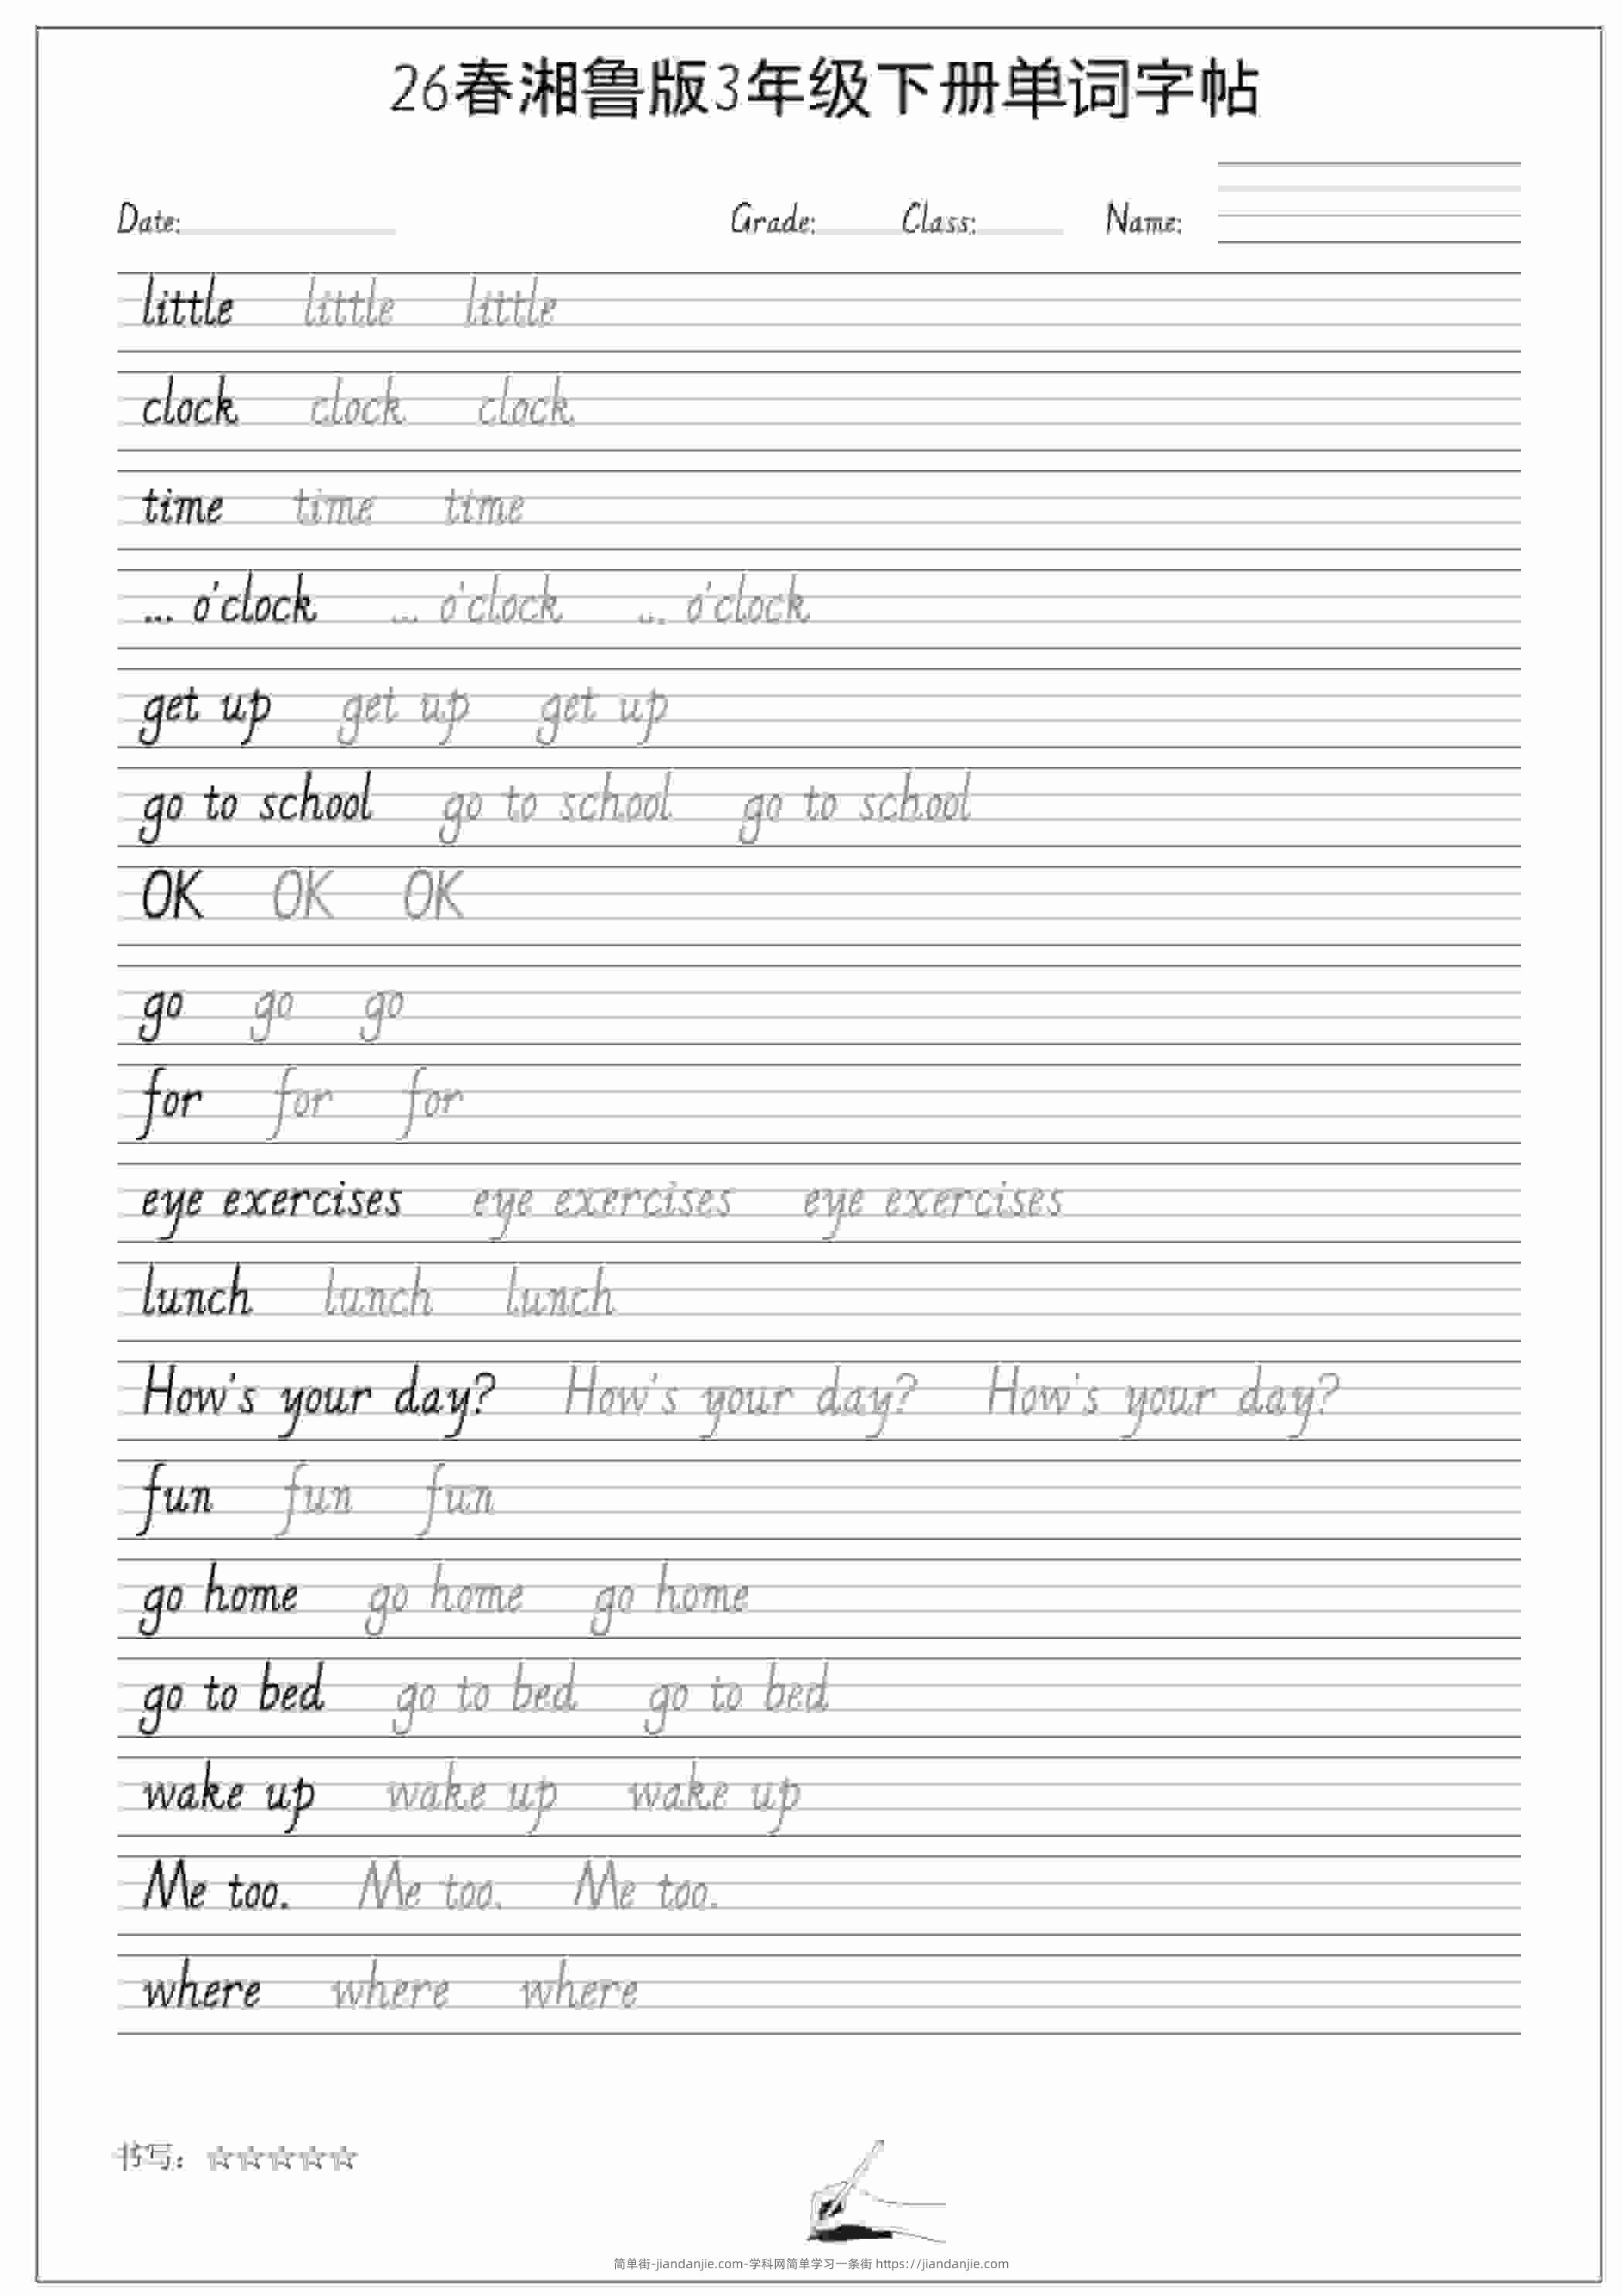 26春湘鲁版3年级下册单词字帖
Date: Grade: Class: Name:
little little little
clock clock clock
time time time
... o'clock ... o'clock ... o'clock
get up get up get up
go to school go to school go to school
OK OK OK
go go go
for for for
eye exercises eye exercises eye exercises
lunch lunch lunch
How's your day? How's your day? How's your day?
fun fun fun
go home go home go home
go to bed go to bed go to bed
wake up wake up wake up
Me too. Me too. Me too.
where where where
书写：☆☆☆☆☆
简单街-jiandanjie.com-学科网简单学习一条街 https://jiandanjie.com